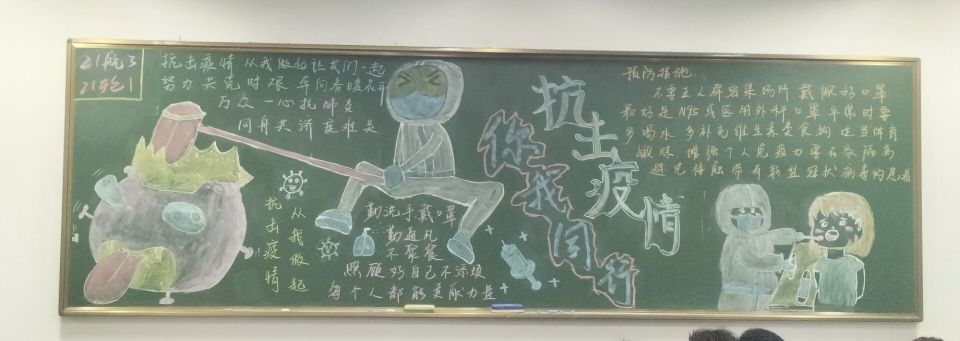 21航3
21轮1
抗击疫情 从我做起让我们一起
努力共克时艰 车间春暖花开
万众一心抗肺炎
同舟共济战难关
从我做起
抗击疫情
勤洗手戴口罩
勤通风
不聚餐
照顾好自己不添烦
每个人都能贡献力量
抗击疫情
你我同行
预防措施
不要去人群密集场所 戴好口罩
最好是N95或医用外科口罩平常时要
多喝水 多补充维生素类食物 适当体育
锻炼 增强个人免疫力要在家隔离
避免接触带有新型冠状病毒的患者